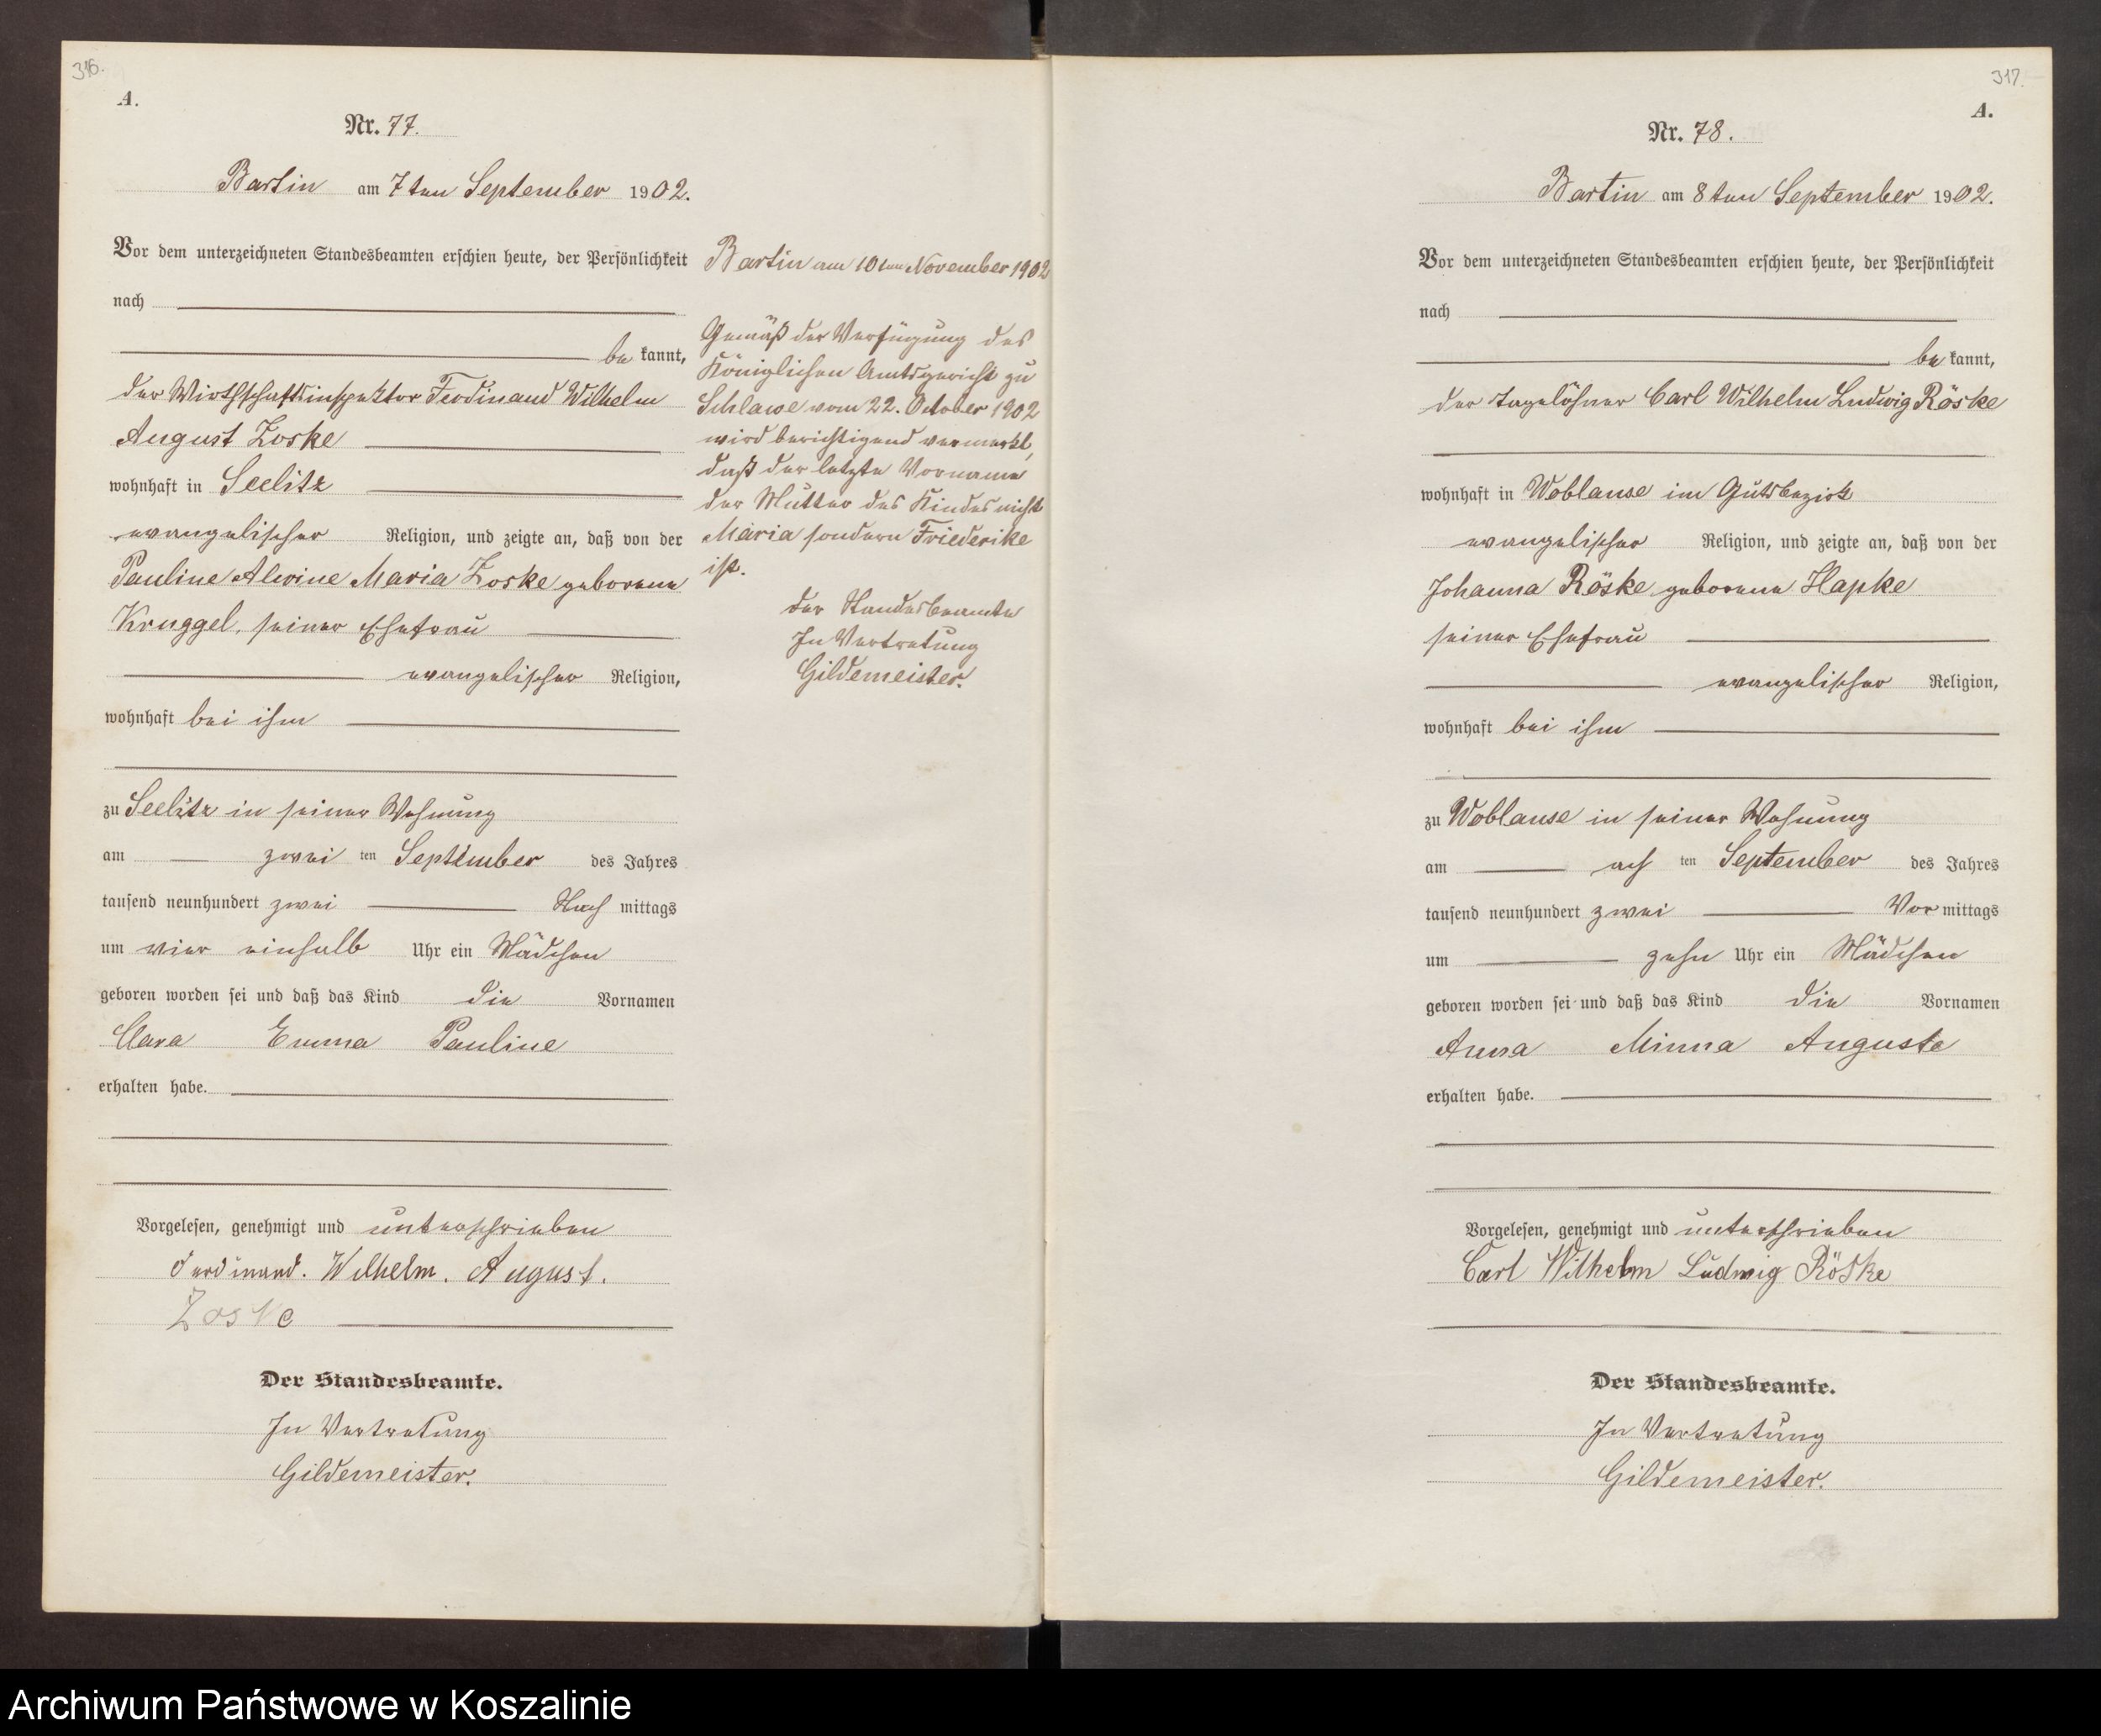 316.
A.
Nr. 77.
Bartin am 7ten September 1902.
Vor dem unterzeichneten Standesbeamten erschien heute, der Persönlichkeit
nach
be kannt,
der Wirthschaftsinspektor Ferdinand Wilhelm
August Zoske
wohnhaft in Seelitz
evangelischer Religion, und zeigte an, daß von der
Pauline Alwine Maria Zoske geborene
Kruggel, seiner Ehefrau
evangelischer Religion,
wohnhaft bei ihm
zu Seelitz in seiner Wohnung
am zwei ten September des Jahres
tausend neunhundert zwei Nach mittags
um vier einhalb Uhr ein Mädchen
geboren worden sei und daß das Kind die Vornamen
Clara Emma Pauline
erhalten habe.
Vorgelesen, genehmigt und unterschrieben
Ferdinand. Wilhelm. August.
Zoske
Der Standesbeamte.
In Vertretung
Gildemeister.
Bartin am 10ten November 1902
Gemäß der Verfügung des
Königlichen Amtsgericht zu
Schlawe vom 22. October 1902
wird berichtigend vermerkt,
daß der letzte Vorname
der Mutter des Kindes nicht
Maria sondern Friederike
ist.
Der Standesbeamte
In Vertretung
Gildemeister.
317.
A.
Nr. 78.
Bartin am 8ten September 1902.
Vor dem unterzeichneten Standesbeamten erschien heute, der Persönlichkeit
nach
be kannt,
der Tagelöhner Carl Wilhelm Ludwig Röske
wohnhaft in Woblanse im Gutsbezirk
evangelischer Religion, und zeigte an, daß von der
Johanna Röske geborene Hapke
seiner Ehefrau
evangelischer Religion,
wohnhaft bei ihm
zu Woblanse in seiner Wohnung
am ach ten September des Jahres
tausend neunhundert zwei Vor mittags
um zehn Uhr ein Mädchen
geboren worden sei und daß das Kind die Vornamen
Anna Minna Auguste
erhalten habe.
Vorgelesen, genehmigt und unterschrieben
Carl Wilhelm Ludwig Röske
Der Standesbeamte.
In Vertretung
Gildemeister.
Archiwum Państwowe w Koszalinie